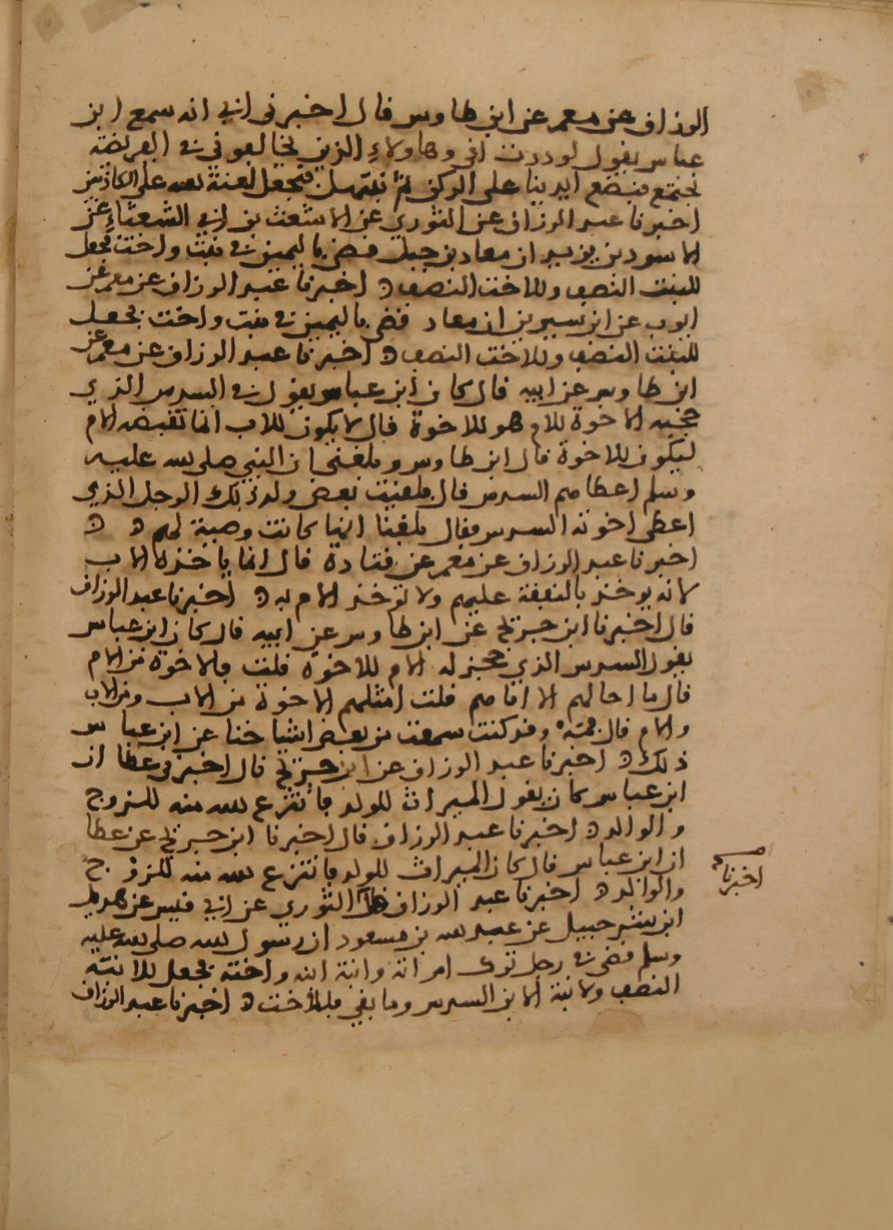 الرزاق عن معمر عن ابن طاوس قال اخبرني ابي انه سمع ابن
عباس يقول لوددت اني وهاولاء الذين يخالفوني في الفريضة
نجتمع فنضع ايدينا على الركن ثم نبتهل فنجعل لعنة الله على الكاذبين
اخبرنا عبد الرزاق عن الثوري عن الاشعث بن ابي الشعثاء عن
الاسود بن يزيد ان معاذ بن جبل قضى باليمن في بنت واخت فجعل
للبنت النصف وللاخت النصف ه اخبرنا عبد الرزاق عن معمر عن
ايوب عن ابن سيرين ان معاذ قضى باليمن في بنت واخت فجعل
للبنت النصف وللاخت النصف ه اخبرنا عبد الرزاق عن معمر عن
ابن طاوس عن ابيه قال كان ابن عباس يقول في السدس الذي
حجبه الاخوة للام هو للاخوة قال لا يكون للاب انما تقبضه الام
ليكون للاخوة قال ابن طاوس وبلغني ان النبي صلى الله عليه
وسلم اعطاهم السدس قال فلقيت بعض ولد ذلك الرجل الذي
اعطى اخوته السدس فقال بلغنا انها كانت وصية لهم ه ه
اخبرنا عبد الرزاق عن معمر عن قتادة قال انما ياخذه الاب
لانه يوخذ بالنفقة عليهم ولا توخذ الام به ه اخبرنا عبد الرزاق
قال اخبرنا ابن جريج عن ابن طاوس عن ابيه قال كان ابن عباس
يقول السدس الذي حجز له الام للاخوة قلت فالاخوة من الام
قال ما اخالهم الا اياهم قلت امثلهم الاخوة من الاب ومن الاب
والام قال فمه وقد كنت سمعت من بعض اشياخنا عن ابن عباس
ذلك ه اخبرنا عبد الرزاق عن ابن جريج قال اخبرني عطا ان
ابن عباس كان يقول الميراث للولد فانتزع الله منه للزوج
والوالد ه اخبرنا عبد الرزاق قال اخبرنا ابن جريج عن عطا
ان ابن عباس قال كان الميراث للولد فانتزع الله منه للزوج
والوالد ه اخبرنا عبد الرزاق الثوري عن ابي قيس عن هزيل
اخبرنا
ابن شرحبيل عن عبد الله بن مسعود ان رسول الله صلى الله عليه
وسلم قضى في رجل ترك امراته وابنة ابنه واخته فجعل للابنته
النصف ولابنة الابن السدس وما بقي فللاخت ه اخبرنا عبد الرزاق